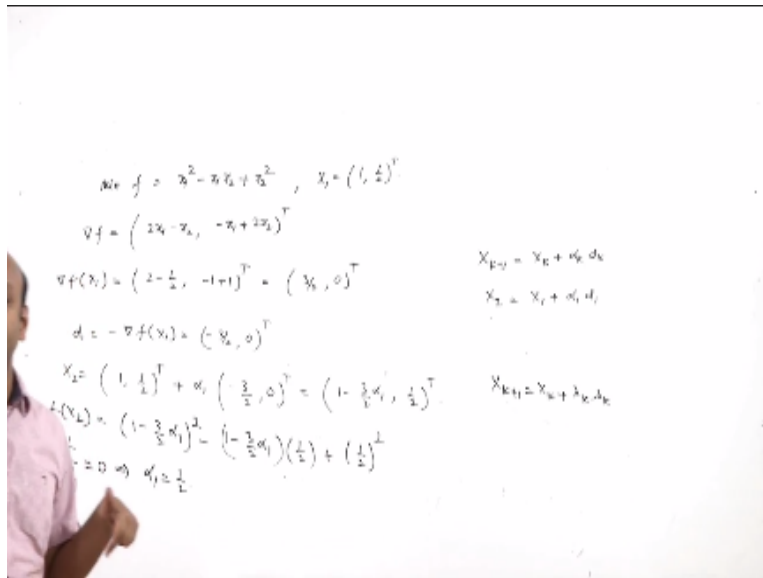 min f = x₁² - x₁x₂ + x₂² , X₁ = (1, 1/2)ᵀ
∇f = (2x₁ - x₂, -x₁ + 2x₂)ᵀ
∇f(X₁) = (2 - 1/2, -1+1)ᵀ = (3/2, 0)ᵀ
d₁ = - ∇f(X₁) = (-3/2, 0)ᵀ
X₂ = (1, 1/2)ᵀ + α₁ (-3/2, 0)ᵀ = (1 - 3/2 α₁, 1/2)ᵀ
f(X₂) = (1 - 3/2 α₁)² - (1 - 3/2 α₁)(1/2) + (1/2)²
= 0 ⇒ α₁ = 1/2
X_{k+1} = X_k + α_k d_k
X₂ = X₁ + α₁ d₁
X_{k+1} = X_k + λ_k d_k